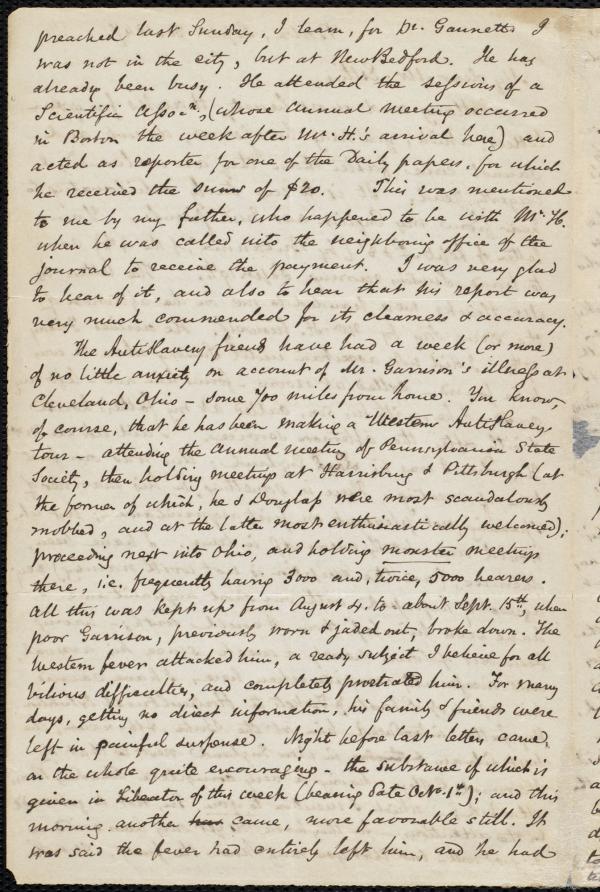 preached last Sunday, I learn, for Dr. Gannett. I
was not in the city, but at New Bedford. He has
already been busy. He attended the sessions of a
Scientific Asso'n., (whose Annual Meeting occurred
in Boston the week after Mr. H.'s arrival here) and
acted as reporter for one of the Daily papers, for which
he received the sum of $20. This was mentioned
to me by my father, who happened to be with Mr. H.
when he was called into the neighboring office of the
Journal to receive the payment. I was very glad
to hear of it, and also to hear that his report was
very much commended for its clearness & accuracy.
The AntiSlavery friends have had a week (or more)
of no little anxiety on account of Mr. Garrison's illness at
Cleveland, Ohio - some 700 miles from home. You know,
of course, that he has been making a Western AntiSlavery
tour - attending the Annual meeting of Pennsylvania State
Society, then holding meetings at Harrisburg & Pittsburgh (at
the former of which, he & Douglass were most scandalously
mobbed, and at the latter most enthusiastically welcomed);
proceeding next into Ohio, and holding monster meetings
there, i.e. frequently having 3000 and, twice, 5000 hearers.
All this was kept up from August 4. to about Sept. 15th, when
poor Garrison, previously worn & jaded out, broke down. The
Western fever attacked him, a ready subject I believe for all
bilious difficulties, and completely prostrated him. For many
days, getting no direct information, his family & friends were
left in painful suspense. Night before last letters came,
on the whole quite encouraging - the substance of which is
given in Liberator of this week (bearing date Oct. 1st); and this
morning another has came, more favorable still. It
was said the fever had entirely left him, and he had